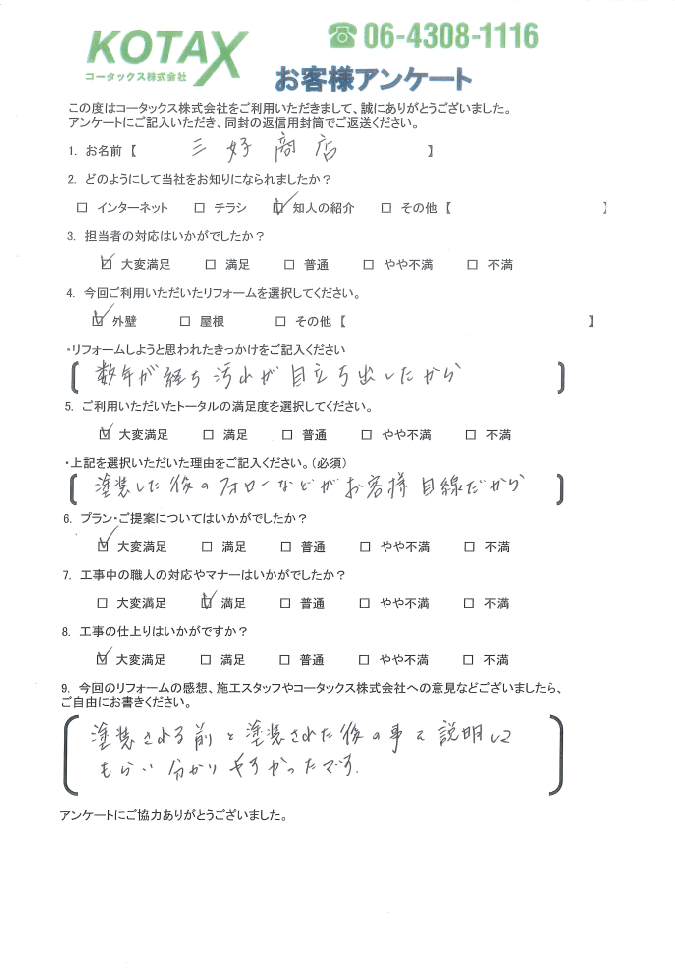 KOTAX
コータックス株式会社
☎ 06-4308-1116
お客様アンケート
この度はコータックス株式会社をご利用いただきまして、誠にありがとうございました。
アンケートにご記入いただき、同封の返信用封筒でご返送ください。
1. お名前【 三好商店 】
2. どのようにして当社をお知りになられましたか？
□ インターネット □ チラシ ☑ 知人の紹介 □ その他【 】
3. 担当者の対応はいかがでしたか？
☑ 大変満足 □ 満足 □ 普通 □ やや不満 □ 不満
4. 今回ご利用いただいたリフォームを選択してください。
☑ 外壁 □ 屋根 □ その他【 】
・リフォームしようと思われたきっかけをご記入ください
数年が経ち汚れが目立ち出したから
5. ご利用いただいたトータルの満足度を選択してください。
☑ 大変満足 □ 満足 □ 普通 □ やや不満 □ 不満
・上記を選択いただいた理由をご記入ください。（必須）
塗装した後のフォローなどがお客様目線だから
6. プラン・ご提案についてはいかがでしたか？
☑ 大変満足 □ 満足 □ 普通 □ やや不満 □ 不満
7. 工事中の職人の対応やマナーはいかがでしたか？
□ 大変満足 ☑ 満足 □ 普通 □ やや不満 □ 不満
8. 工事の仕上りはいかがですか？
☑ 大変満足 □ 満足 □ 普通 □ やや不満 □ 不満
9. 今回のリフォームの感想、施工スタッフやコータックス株式会社への意見などございましたら、
ご自由にお書きください。
塗装される前と塗装された後の事を説明して
もらい分かりやすかったです.
アンケートにご協力ありがとうございました。